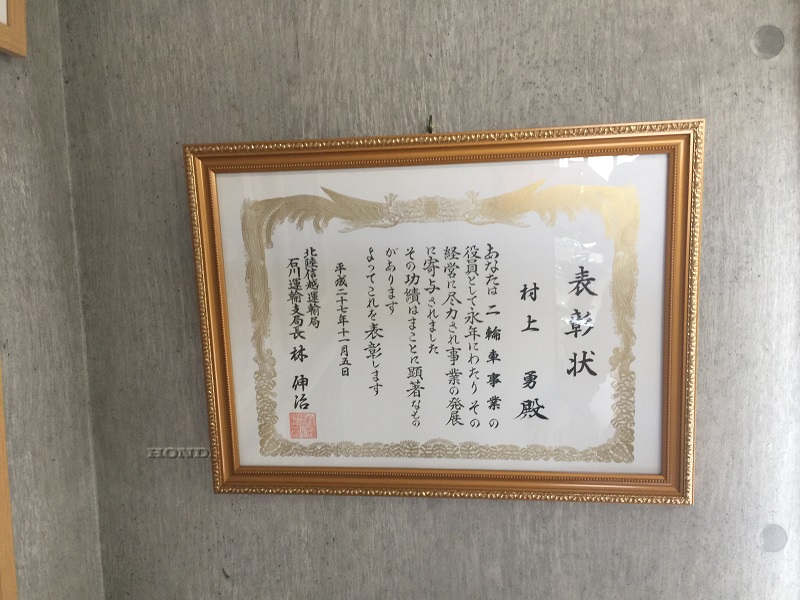 表彰状
村上 勇殿
あなたは二輪車事業の
役員として永年にわたりその
経営に尽力され事業の発展
に寄与されました
その功績はまことに顕著なもの
があります
よってこれを表彰します
平成二十七年十一月五日
北陸信越運輸局
石川運輸支局長 林 伸治
HOND